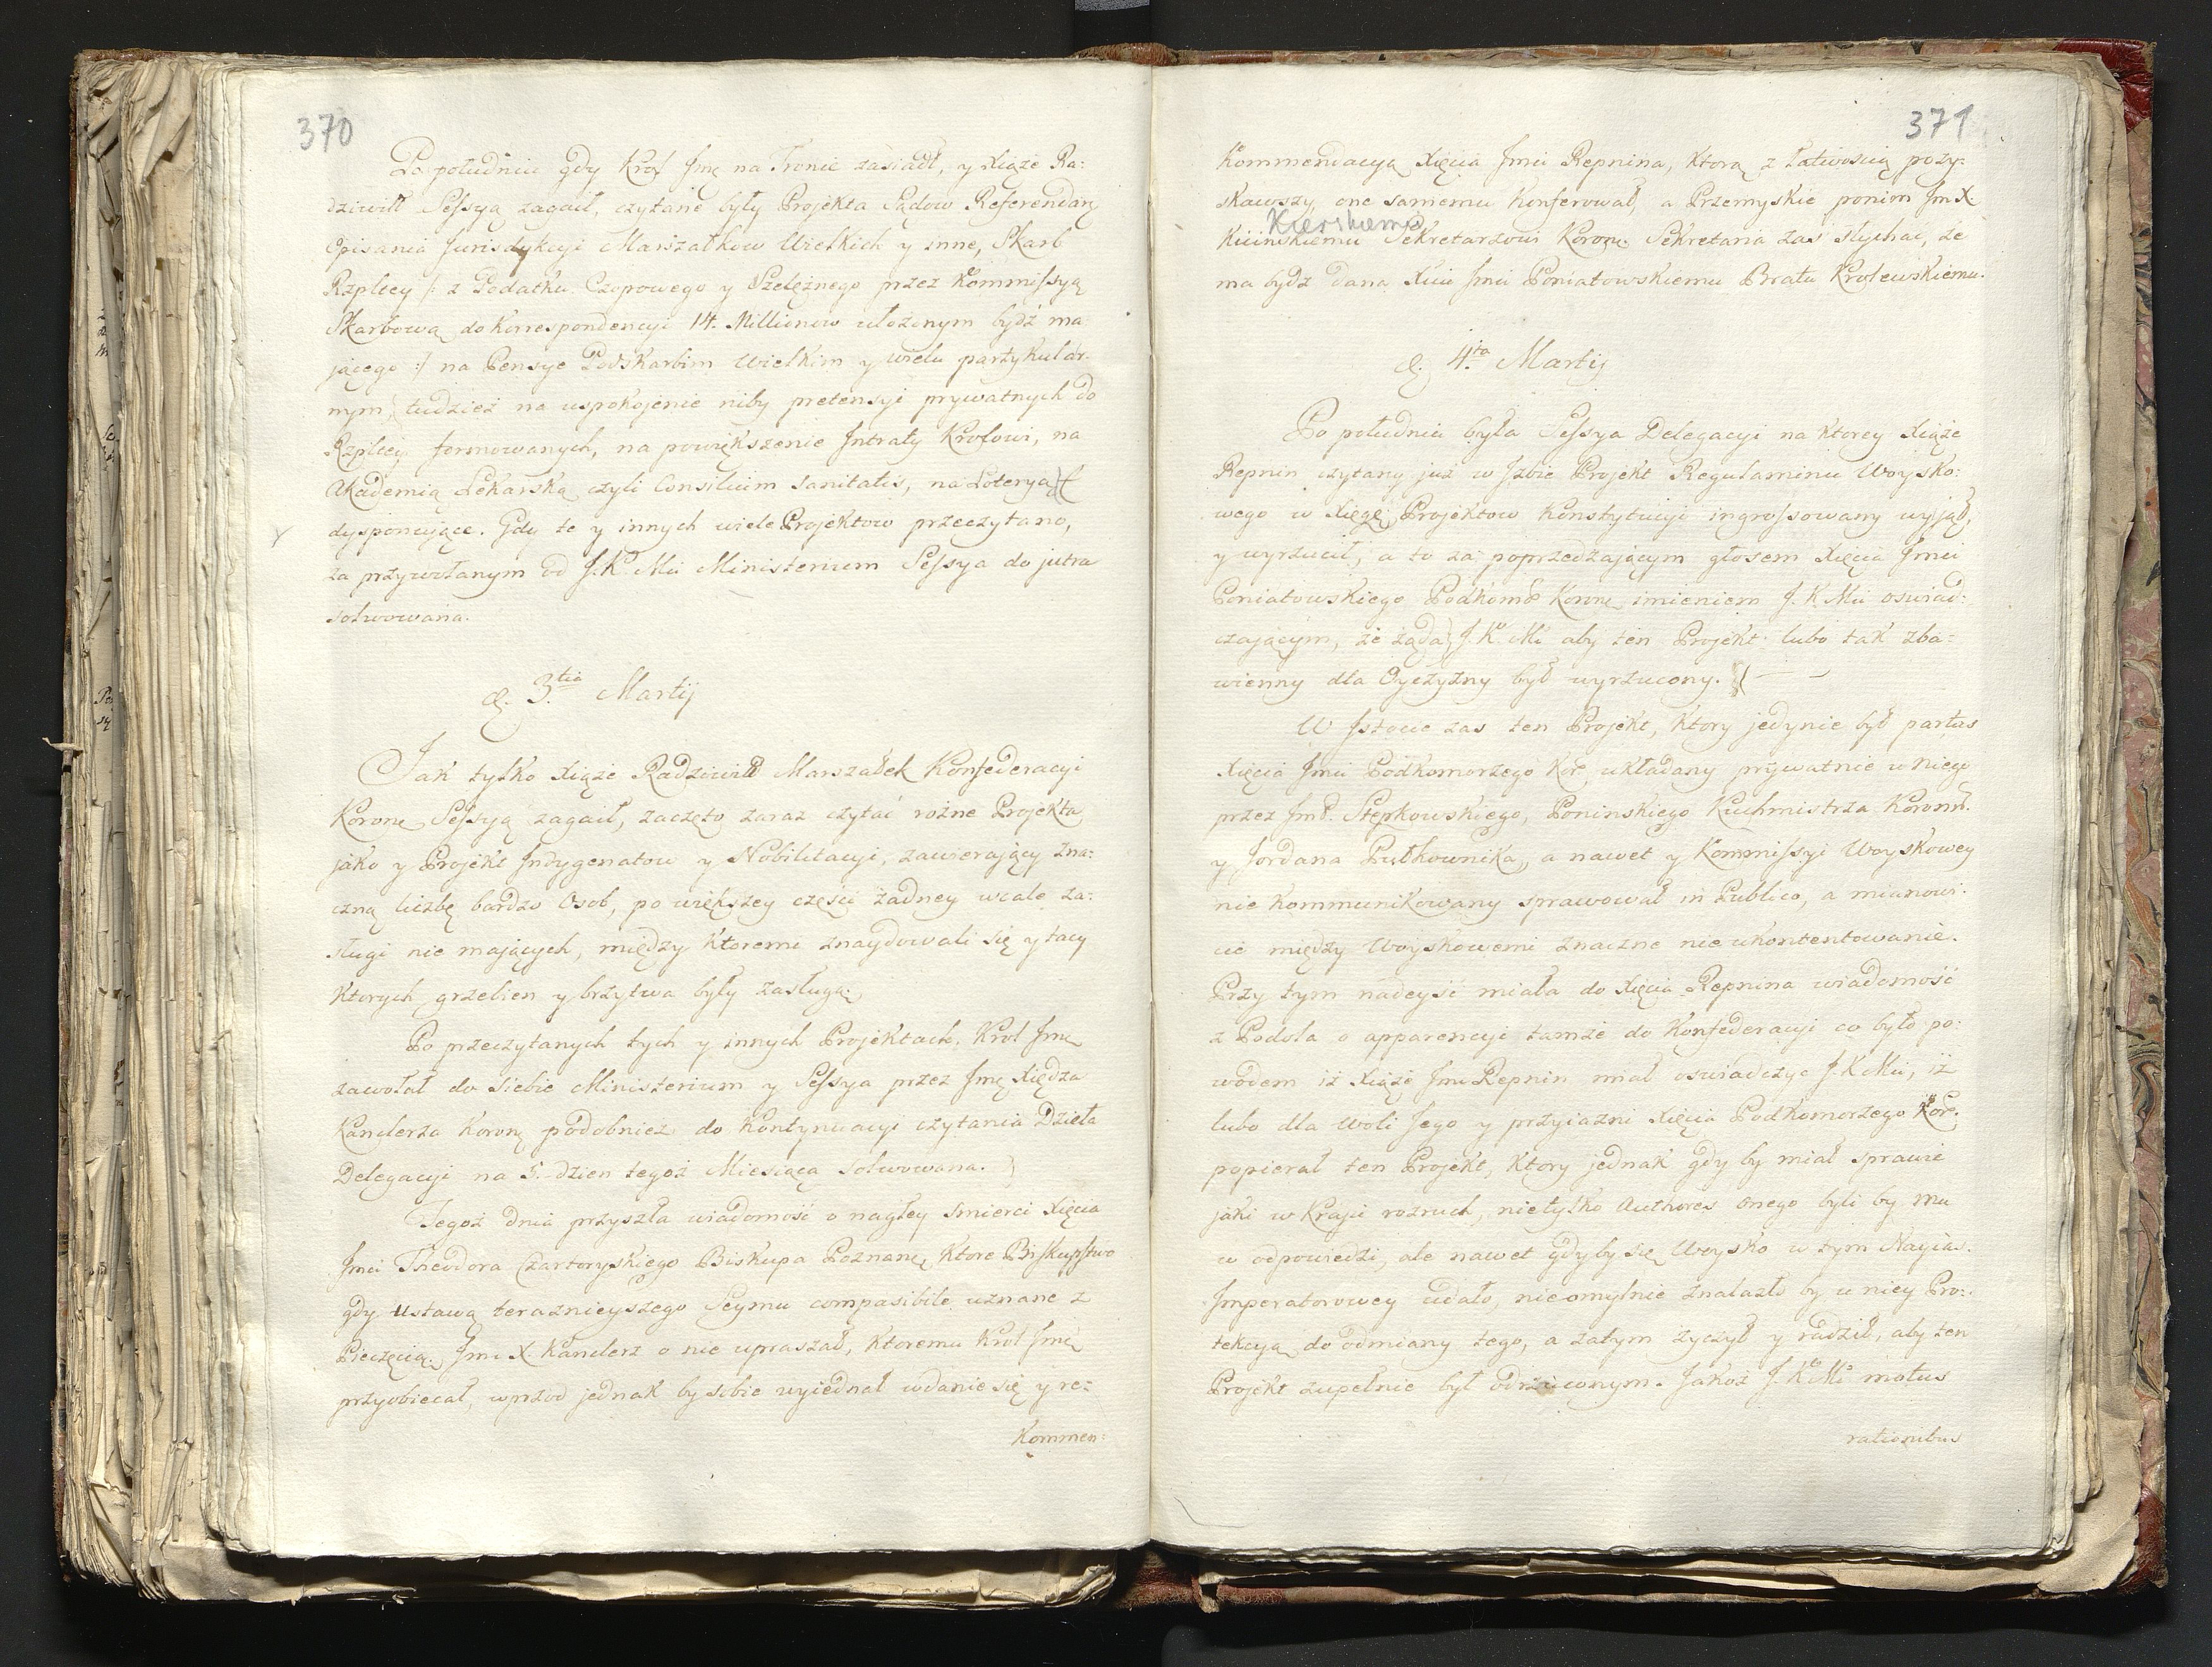 370
Po południu gdy Krol Jmć na Tronie zasiadł, y Xiąże Ra:
dziwiłł Sessyą zagaił, czytane były Projekta Sądow Referendarſ
Opisania Jurisdykcyi Marszałkow Wielkich y inne, Skarb
Rzpltey /: z Podatku Czopowego y Szelężnego przez Kommissyą
Skarbową do Korrespondencyi 14. Millionow ułożonym bydź ma
jącego :/ na Pensye Podskarbim Wielkim y wielu partykular.
nym, tudzież na uspokojenie niby pretensyi prywatnych do
Rzpltey formowanych, na powiększenie Intraty Krolowi, na
Akademią Lekarską czyli Consilium sanitatis, na Loteryą
dysponujące. Gdy te y innych wiele Projektow przeczytano,
za przywołanym od J.K. Mci Ministerium Sessya do jutra
solwowana.
d. 3.tia Martij
Jak tylko Xiąże Radziwiłł Marszałek Konfederacyi
Koronę Sessyą zagaił, zaczęto zaraz czytać rożne Projekta
jako y Projekt Indygenatow y Nobilitacyi, zawierający zna:
czną liczbę bardzo Osob, po większey części żadney wcale za:
sługi nie mających, między ktoremi znaydowali się y tacy
ktorych grzebien y brzytwa były zasługą.
Po przeczytanych tych y innych Projektach, Krol Jmć
zawołał do siebie Ministerium y Sessya przez Jmć Xiędza
Kanclerza Koronę podobnież do kontynuacyi czytania Dzieła
Delegacyi na 5. dzien tegoż Miesiąca solwowana.
Tegoż dnia przyszła wiadomość o nagłey smierci Xięcia
Jmci Theodora Czartoryskiego Biskupa Poznanę, ktore Biskupstwo
gdy Ustawą teraznieyszego Seymu compasibile uznane z
Pieczęcią. Jmci X. Kanclerz o nie upraszał, ktoremu Krol Jmć
przyobiecał, wprzod jednak by sobie wyiednał wdanie się y re:
Kommen:
371
Kommendacyą Xięcia Jmci Repnina, ktorą z łatwością pozy:
skawszy, one samemu konferował, a Przemyskie ponion Jm X
Kierskiemu
Kiiińskiemu Sekretarzowi Koronę. Sekretaria zas słychac, że
ma bydz dana Xciu Jmci Poniatowskiemu Bratu Krolewskiemu.
d. 4.ta Martij
Po południu była Sessya Delegacyi na ktorey Xiąże
Repnin czytany już w Izbie Projekt Regulaminu Woysko:
wego w Xięgę Projektow Konstytucyi ingrossowany wyjął,
y wyrzucił, a to za poprzedzającym głosem Xięcia Jmci
Poniatowskiego Podkom Koronę imieniem J.K. Mci oswiad:
czającym, że żąda J.K. Mć aby ten Projekt lubo tak zba=
wienny dla Oyczyzny był wyrzucony.
W Istocie zas ten Projekt, ktory jedynie był partus
Xięcia Jmci Podkomorzego Kor, układany prywatnie u niego
przez Jmć. Stępkowskiego, Poninskiego Kuchmistrza Koronn.
y Jordana Pułkownika, a nawet y Kommissyi Woyskowey
nie kommunikowany sprawował in Publico, a mianowi.
cie między Woyskowemi znaczne nieukontentowanie.
Przy tym nadeyść miała do Xięcia Repnina wiadomość
z Podola o apparencyi tamże do Konfederacyi co było po:
wodem iż Xiąże Jmć Repnin miał oswiadczyc J.K. Mci, iż
lubo dla woli Jego y przyiazni Xięcia Podkomorzego Kor.
popierał ten Projekt, ktory jednak gdy by miał sprawić
jaki w Kraju rozruch, nietylko Authores onego byli by mu
w odpowiedzi, ale nawet gdyby się Woysko w tym Nayias.
Imperatorowey udało, nieomylnie znalazło by u niey Pro:.
tekcyą do odmiany tego, a zatym życzył y radził, aby ten
Projekt zupełnie był odrzuconym. Jakoż J.K. Mć motus
rationibus